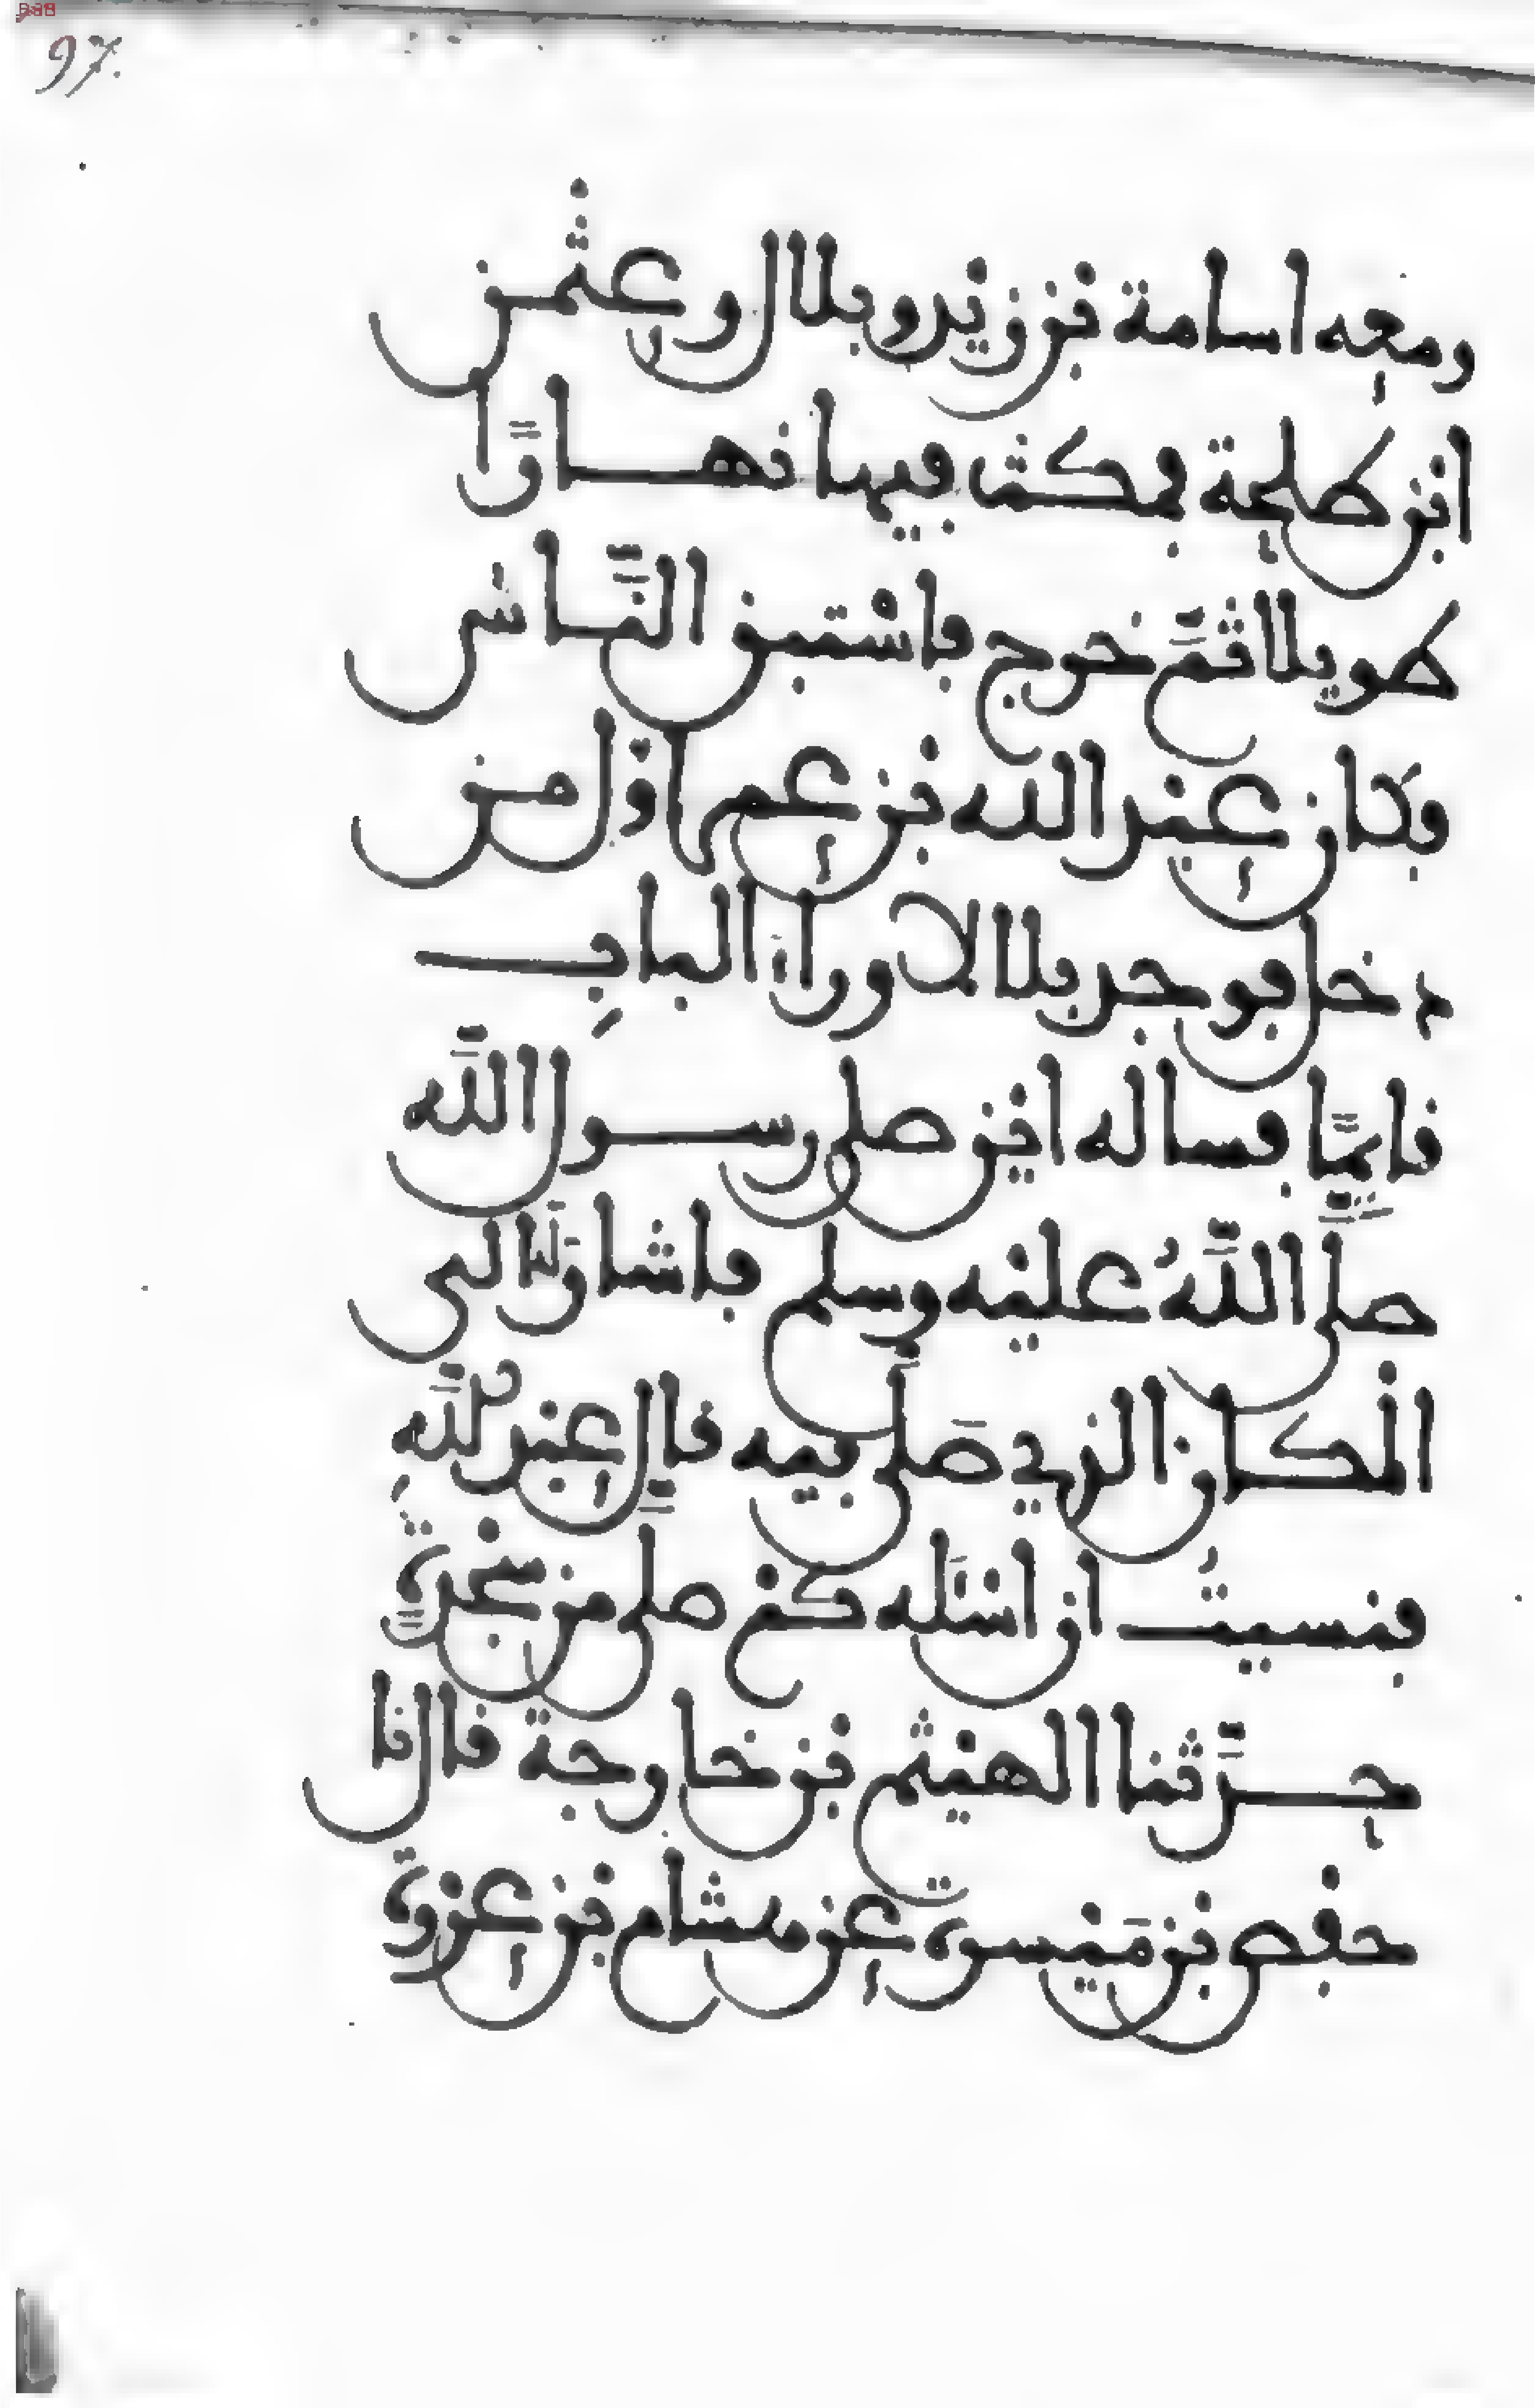 97.
ومعه اسامة بن زيد وبلال وعثمن
ابن طلحة فمكث فيها نهارًا
طويلا ثمَّ خرج فاسْتبق النَّاس
وكان عبد الله بن عمر اوّل من
دخل فوجد بلالا وراء البابِ
قايمًّا فساله اين صلى رسول الله
صلَّى اللَّهُ عليْه وسلم فاشار له الى
المكان الذي صَلى فيه قال عبد اللَّهِ
فنسيتُ ان اسْئَله كم صلى من سجْدةٍ
حدَّثنا الهيْثم بن خارجة قال نا
حفص بن مَيْسرة عن هشام بن عروة